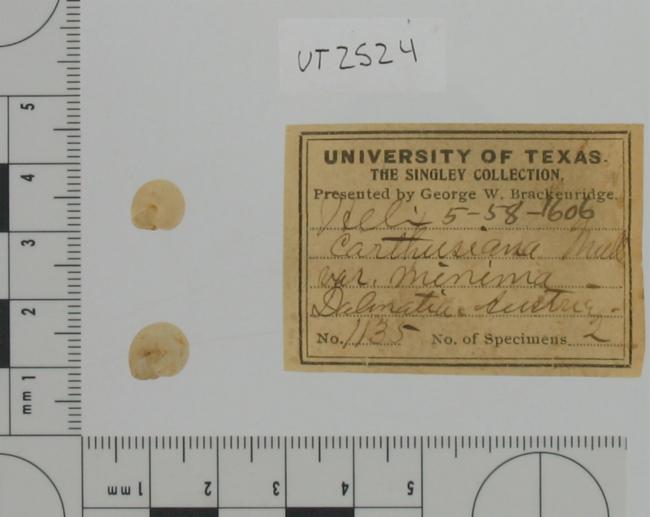 UT2524
UNIVERSITY OF TEXAS.
THE SINGLEY COLLECTION.
Presented by George W. Brackenridge.
Helix 5-58-1606
Carthusiana Mull
var. minima
Dalmatia. Austria.
No. 1135 No. of Specimens 2
5
4
3
2
1
mm
mm 1 2 3 4 5